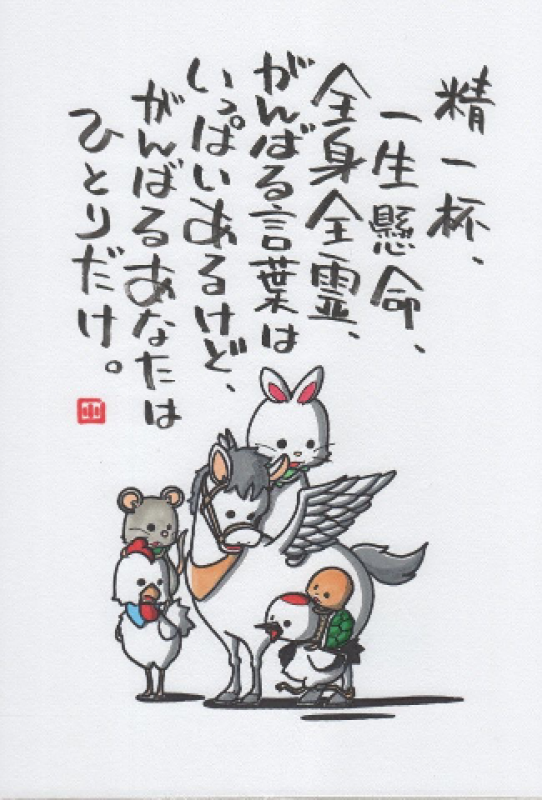 精一杯、
一生懸命、
全身全霊、
がんばる言葉は
いっぱいあるけど、
がんばるあなたは
ひとりだけ。